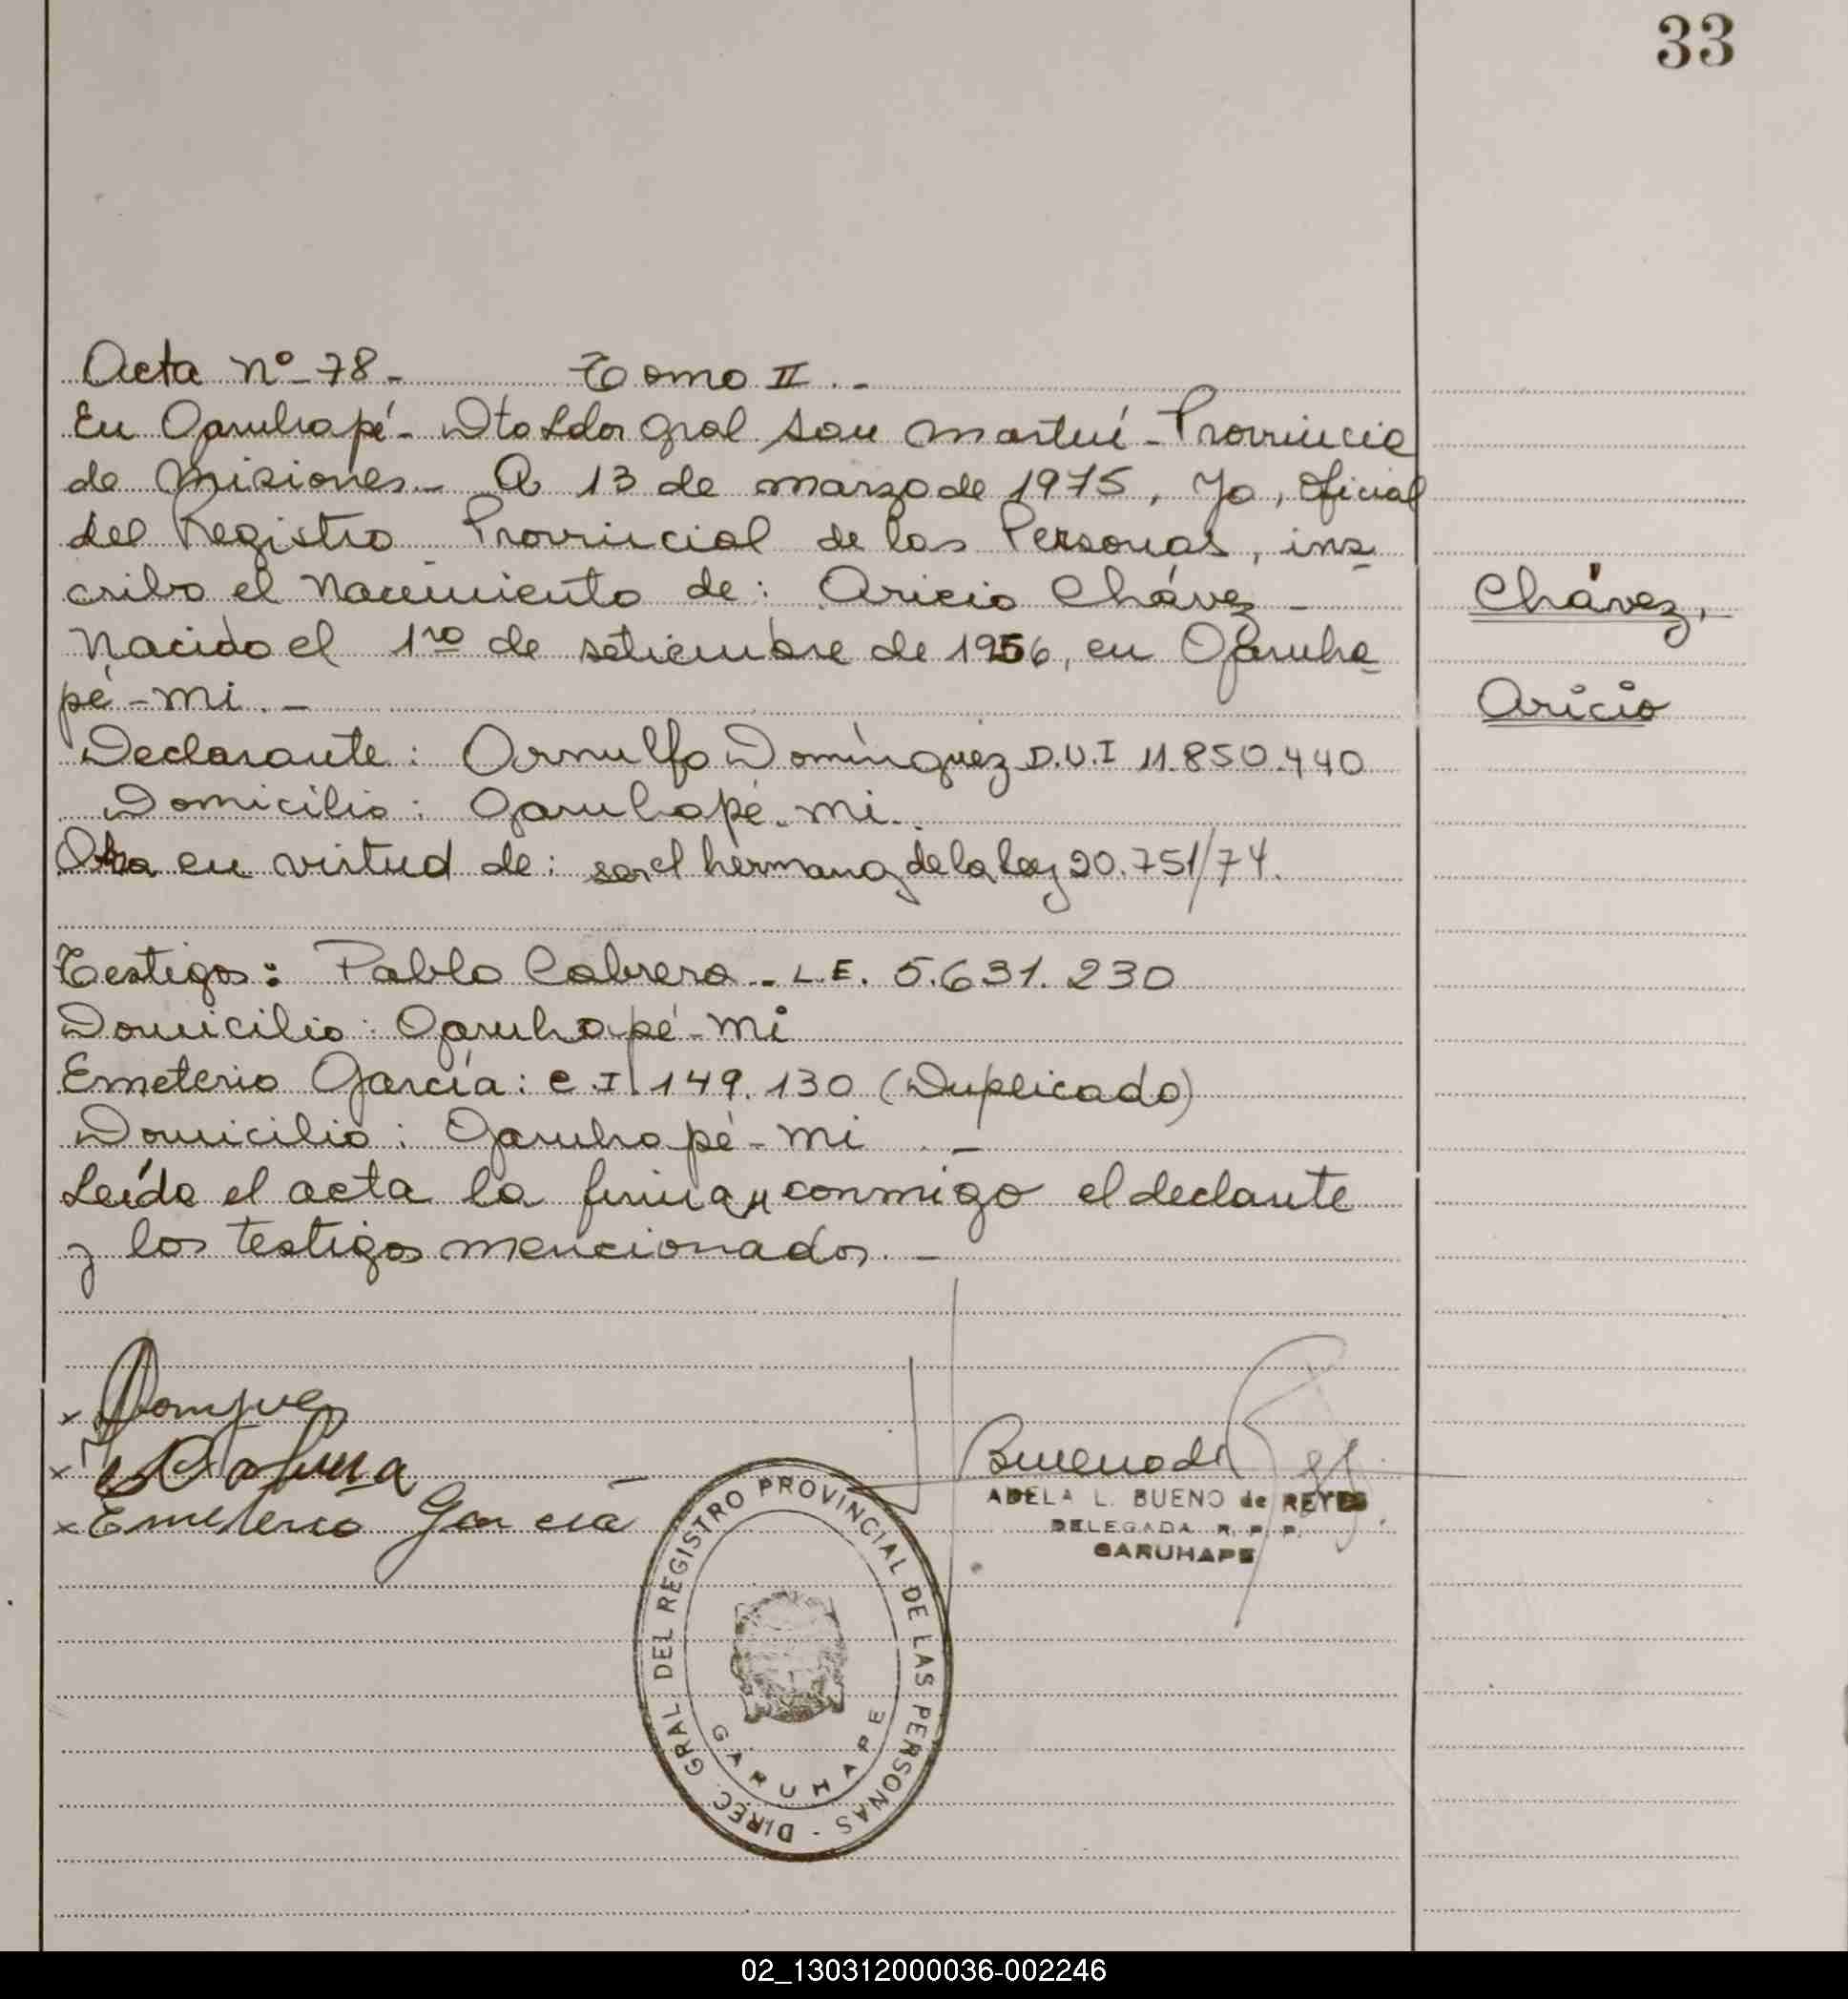 33
Acta nº 78- Tomo II.-
En Garuhapé- Dto Ldor Gral San Martín- Provincia
de Misiones.- A 13 de marzo de 1975, Yo, Oficial
del Registro Provincial de las Personas, ins
cribo el Nacimiento de: Aricio Chávez -
Chávez,
Nacido el 1ro de setiembre de 1956, en Garuha
pé-Mi.-
Aricio
Declarante: Arnulfo Domínguez D.U.I 11.850.440
Domicilio: Garuhapé-Mi.
Obra en virtud de: ser el hermano, de la Ley 20.751/74.
Testigos: Pablo Cabrera.. L.E. 5.631.230
Domicilio: Garuhapé-Mi
Emeterio García: C.I. 149.130 (Duplicado)
Domicilio: Garuhapé-Mi.-
Leída el acta la firman conmigo el declante
y los testigos mencionados.-
x
x
x Emeterio Garcia
Bueno de Reyes
ADELA L. BUENO de REYES
DELEGADA R. P. P.
GARUHAPE
DIREC. GRAL DEL REGISTRO PROVINCIAL DE LAS PERSONAS -
GARUHAPE
02_130312000036-002246